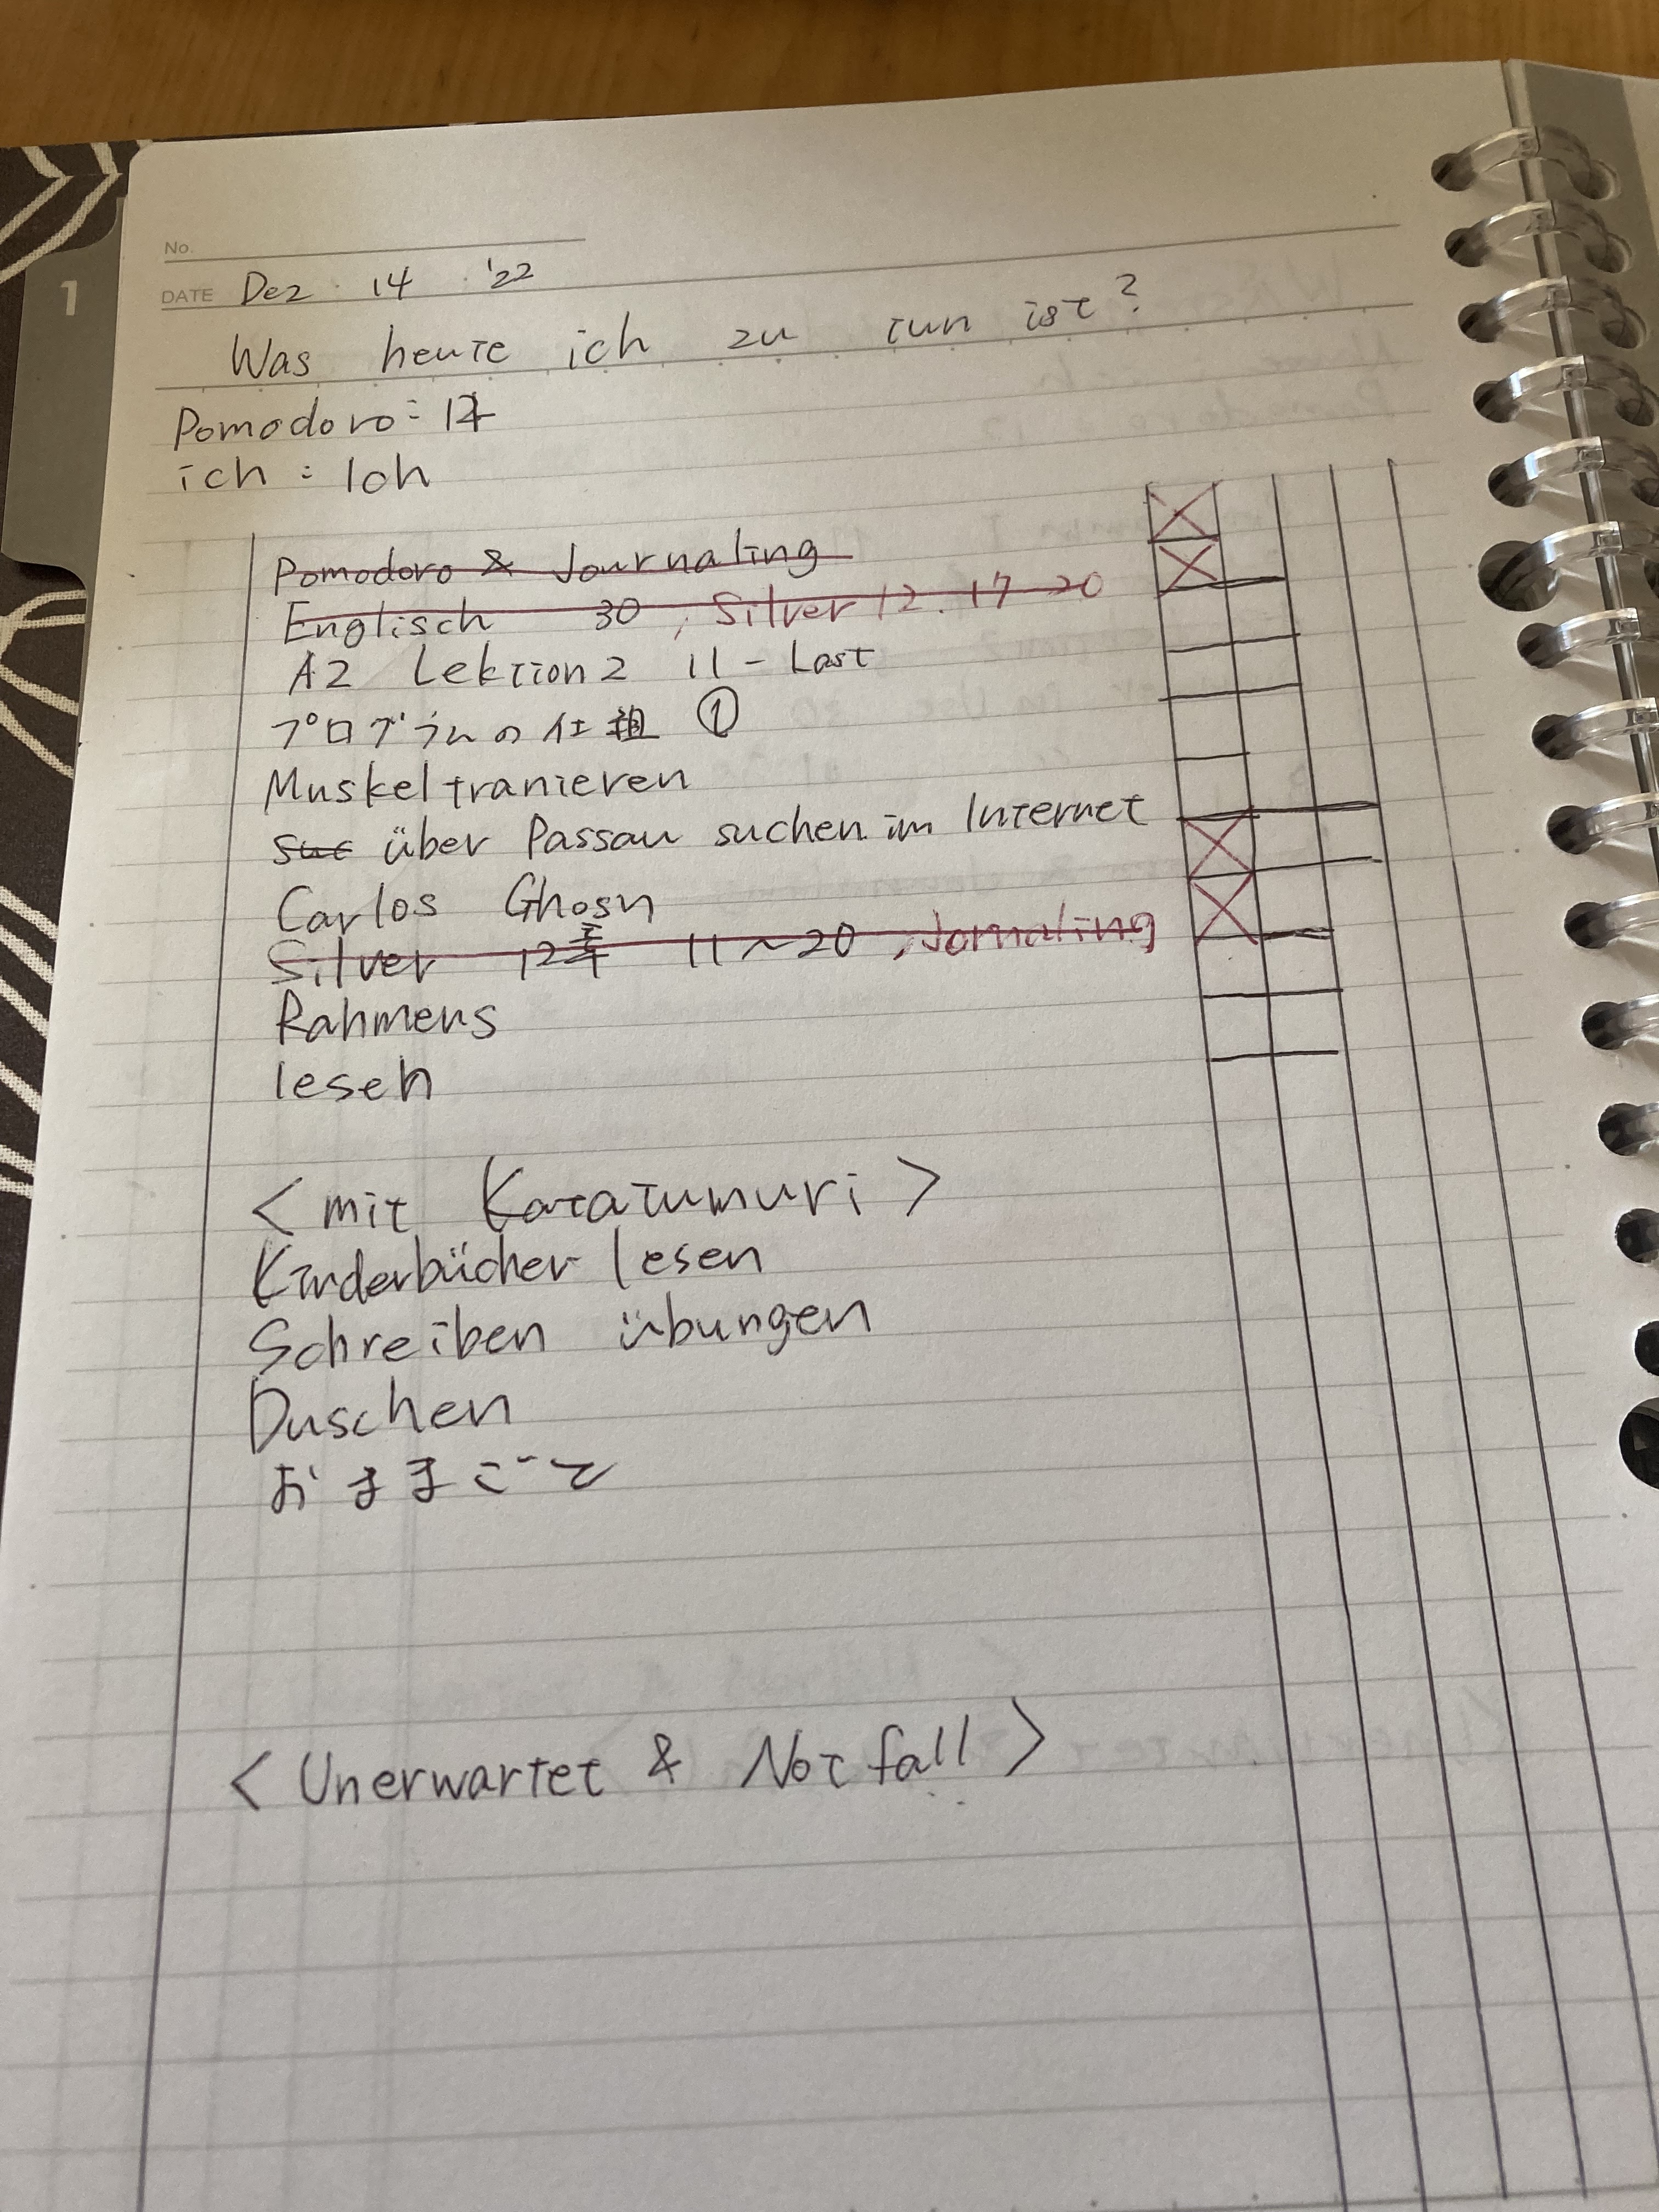 1
No.
DATE Dez 14 '22
Was heute ich zu tun ist?
Pomodoro: 
ich : 10h
Pomodoro & Journaling
Englisch 30 , Silver 12. 17-20
A2 Lektion 2 11 - Last
プログラムの仕組 ①
Muskeltranieren
suc über Passau suchen im Internet
Carlos Ghosn
Silver 12章 11~20 , Jornaling
Rahmens
lesen
< mit Katatumuri >
Kinderbücher lesen
Schreiben übungen
Duschen
おままごと
< Unerwartet & Notfall >